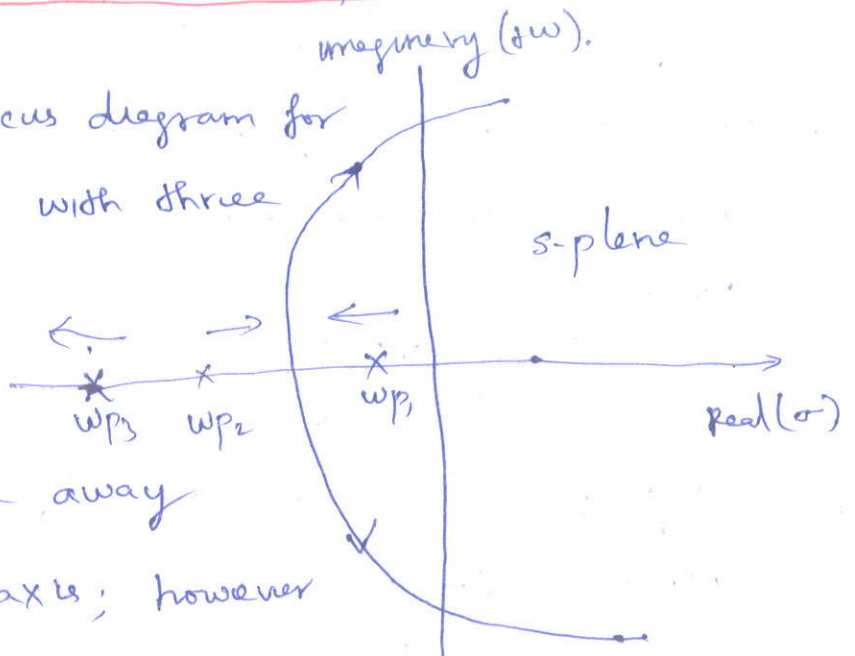 imaginery (jw).
cus diagram for
with three
s-plane
wp3 wp2 wp1
Real(σ)
away
axis; however